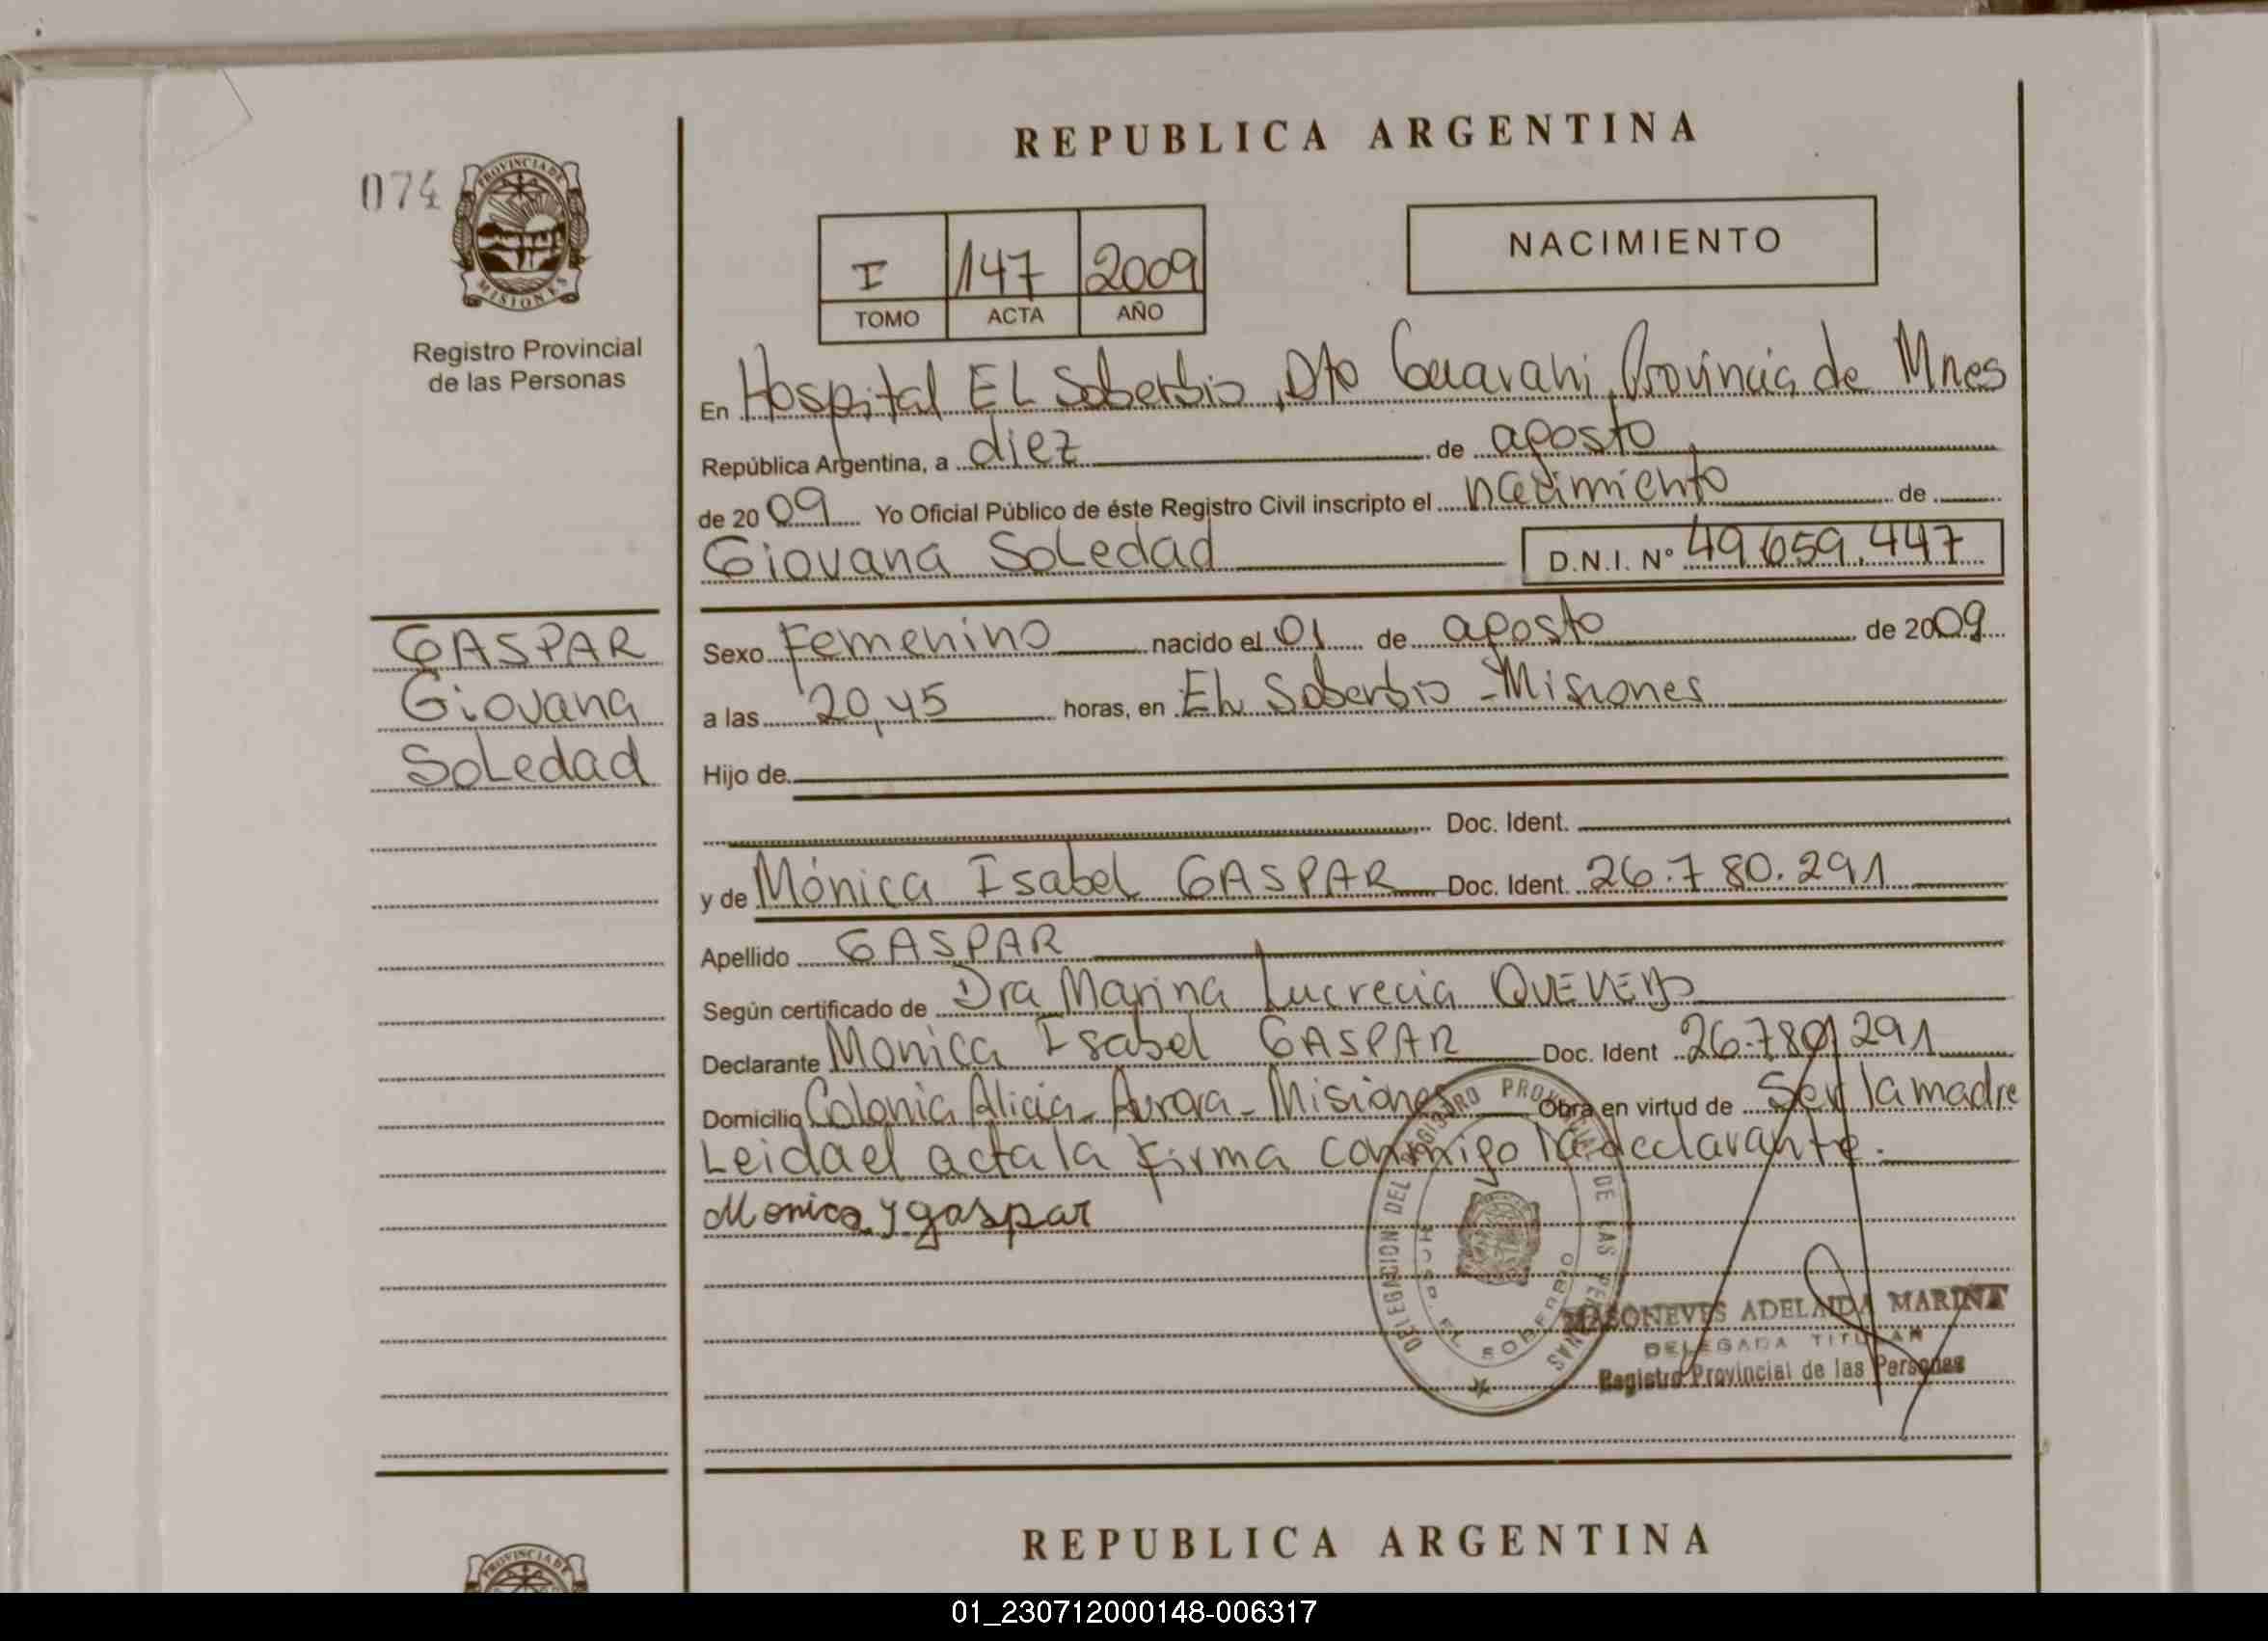 REPUBLICA ARGENTINA
074
PROVINCIA DE
MISIONES
Registro Provincial
de las Personas
NACIMIENTO
I 147 2009
TOMO ACTA AÑO
En Hospital EL Soberbio, Dto Guarani, Provincia de Mnes
República Argentina, a diez de agosto
de 2009 Yo Oficial Público de éste Registro Civil inscripto el nacimiento de
Giovana Soledad D.N.I. Nº 49.659.447
GASPAR
Giovana
Soledad
Sexo Femenino nacido el 01 de agosto de 2009
a las 20,45 horas, en EL Soberbio - Misiones
Hijo de
Doc. Ident.
y de Mónica Isabel GASPAR Doc. Ident. 26.780.291
Apellido GASPAR
Según certificado de Dra Marina Lucrecia
Declarante Monica Isabel GASPAR Doc. Ident 26.780.291
Domicilio Colonia Alicia - Aurora - Misiones Obra en virtud de Ser la madre
Leida el acta la firma conmigo la declarante.
Monica y gaspar
DELEGACION DEL REGISTRO PROVINCIAL DE LAS PERSONAS
HOSP. EL SOBERBIO
ADELAIDA MARINA
DELEGADA TITULAR
Registro Provincial de las Personas
REPUBLICA ARGENTINA
PROVINCIA DE
01_230712000148-006317